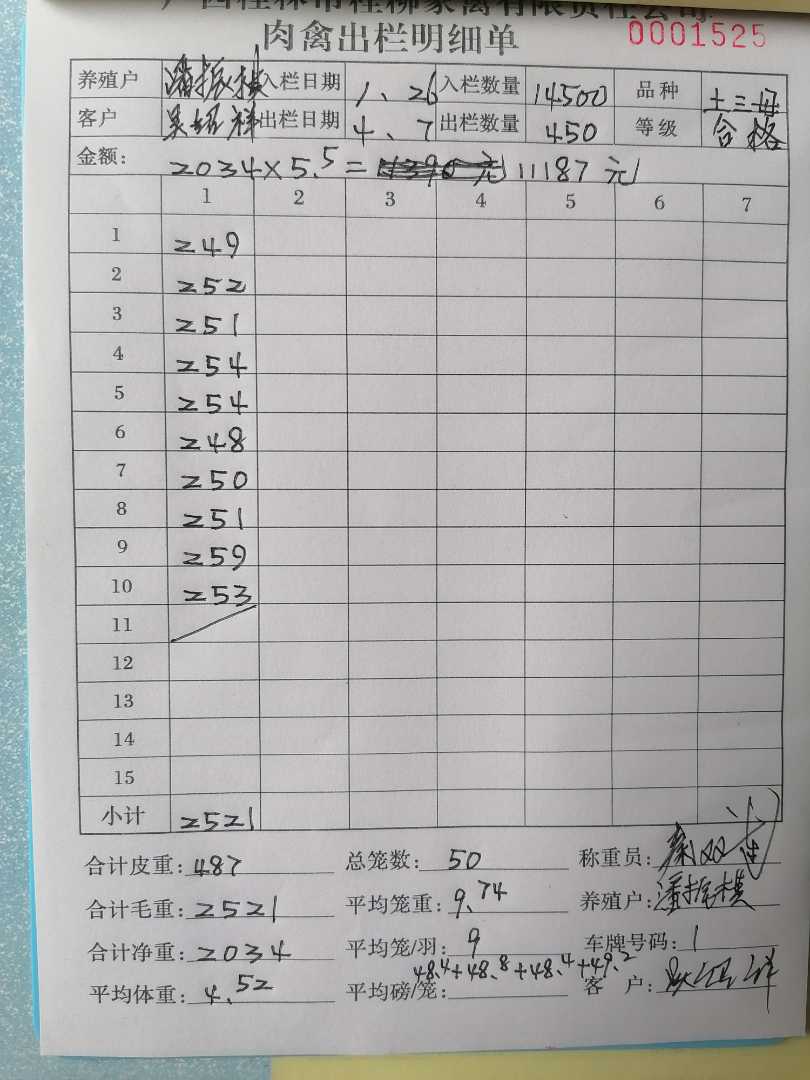 广西桂林市桂柳家禽有限责任公司
肉禽出栏明细单 0001525
养殖户 潘振模 入栏日期 1、26 入栏数量 14500 品种 土三母
客户 吴绍祥 出栏日期 4、7 出栏数量 450 等级 合格
金额: 2034×5.5= 元 11187元
1 2 3 4 5 6 7
1 249
2 252
3 251
4 254
5 254
6 248
7 250
8 251
9 259
10 253
11
12
13
14
15
小计 2521
合计皮重: 487 总笼数: 50 称重员:
合计毛重: 2521 平均笼重: 9.74 养殖户: 潘振模
合计净重: 2034 平均笼/羽: 9 车牌号码: 1
48.4+48.8+48.4+49.2
平均体重: 4.52 平均磅/笼: 客 户: 吴绍祥